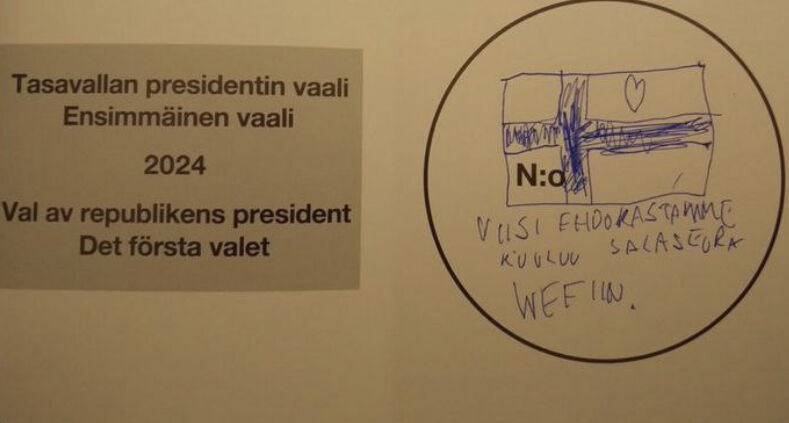 Tasavallan presidentin vaali
Ensimmäinen vaali
2024
Val av republikens president
Det första valet
N:o
VIISI EHDOKASTAMME
KUULUU SALASEURA
WEFIIN.